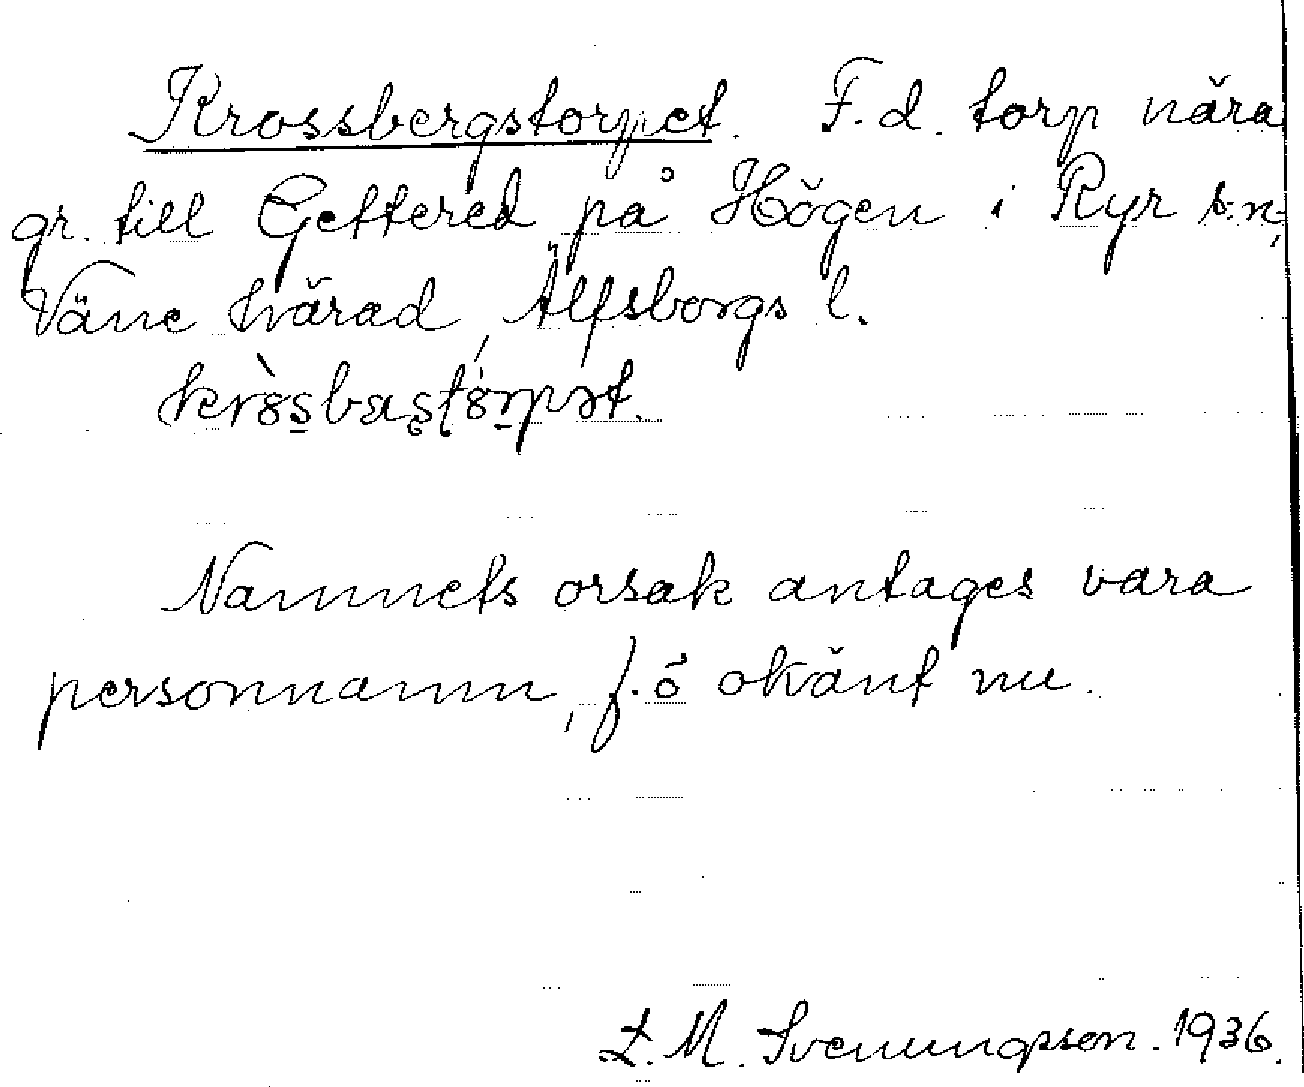 Krossbergstorpet. F.d. torp nära
gr. till Gettered på Högen i Ryr sn,
Väne härad, Älfsborgs l.
Namnets orsak antages vara
personnamn, f.ö okänt nu.
L. M. Svenungsson. 1936.